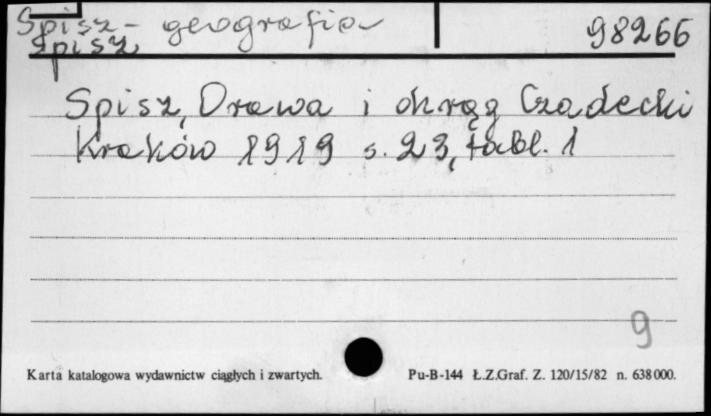 Spisz - geografia 98266
Spisz,
Spisz, Orawa i okręg Czadecki
Kraków 1919 s. 23, tabl. 1
9
Karta katalogowa wydawnictw ciągłych i zwartych. Pu-B-144 Ł.Z.Graf. Z. 120/15/82 n. 638000.